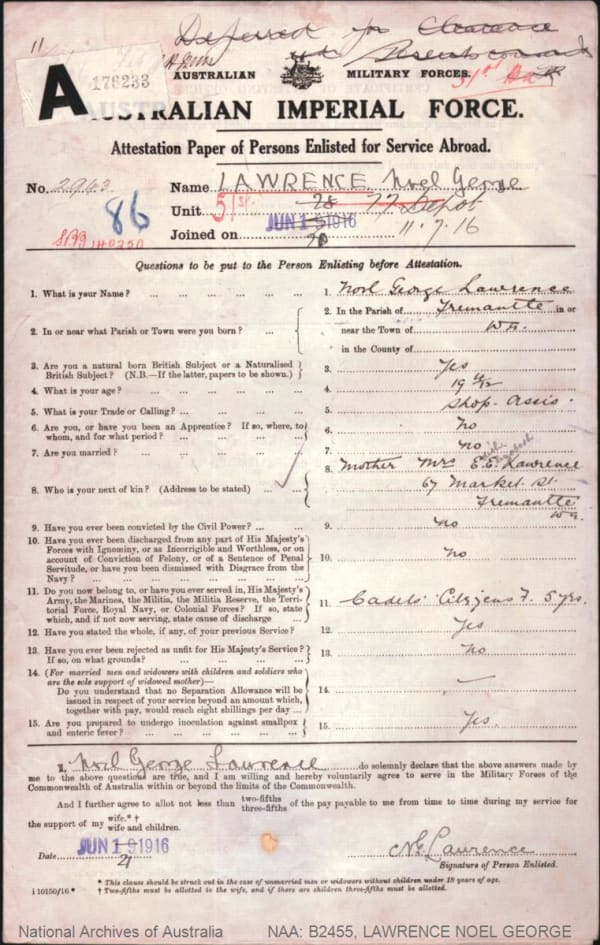 11
Deferred for Clearance
176233
A
AUSTRALIAN MILITARY FORCES.
51st
AUSTRALIAN IMPERIAL FORCE.
Attestation Paper of Persons Enlisted for Service Abroad.
No. 2943 Name LAWRENCE Noel George
86 Unit 51st 28 77 Depot
Joined on JUN 1 1916 11.7.16
Questions to be put to the Person Enlisting before Attestation.
1. What is your Name? ... 1. Noel George Lawrence
2. In or near what Parish or Town were you born? ... 2. In the Parish of Fremantle in or
near the Town of W.A.
in the County of
3. Are you a natural born British Subject or a Naturalised
British Subject? (N.B.—If the latter, papers to be shown.) 3. Yes
4. What is your age? ... 4. 19
5. What is your Trade or Calling? ... 5. Shop. Assis.
6. Are you, or have you been an Apprentice? If so, where, to
whom, and for what period? ... 6. No
7. Are you married? ... 7. No
8. Who is your next of kin? (Address to be stated) ... 8. Mother Mrs E.E. Lawrence
67 Market St.
Fremantle
W.A.
9. Have you ever been convicted by the Civil Power? ... 9. No
10. Have you ever been discharged from any part of His Majesty's
Forces with Ignominy, or as Incorrigible and Worthless, or on
account of Conviction of Felony, or of a Sentence of Penal
Servitude, or have you been Dismissed with Disgrace from the
Navy? ... 10. No
11. Do you now belong to, or have you ever served in, His Majesty's
Army, the Marines, the Militia, the Militia Reserve, the Terri-
torial Force, Royal Navy, or Colonial Forces? If so, state
which, and if not now serving, state cause of discharge ... 11. Cadets Citizens F. 5 yrs.
12. Have you stated the whole, if any, of your previous Service? 12. Yes
13. Have you ever been rejected as unfit for His Majesty's Service?
If so, on what grounds? ... 13. No
14. (For married men and widowers with children and soldiers who
are the sole support of widowed mother)—
Do you understand that no Separation Allowance will be
issued in respect of your service beyond an amount which,
together with pay, would reach eight shillings per day ... 14. —
15. Are you prepared to undergo inoculation against smallpox
and enteric fever? ... 15. Yes.
I, Noel George Lawrence do solemnly declare that the above answers made by
me to the above questions are true, and I am willing and hereby voluntarily agree to serve in the Military Forces of the
Commonwealth of Australia within or beyond the limits of the Commonwealth.
And I further agree to allot not less than two-fifths three-fifths of the pay payable to me from time to time during my service for
the support of my wife.* † wife and children.
Date JUN 19 1916
21
N G Lawrence
Signature of Person Enlisted.
* This clause should be struck out in the case of unmarried men or widowers without children under 18 years of age.
† Two-fifths must be allotted to the wife, and if there are children three-fifths must be allotted.
i 10150/16 *
National Archives of Australia NAA: B2455, LAWRENCE NOEL GEORGE